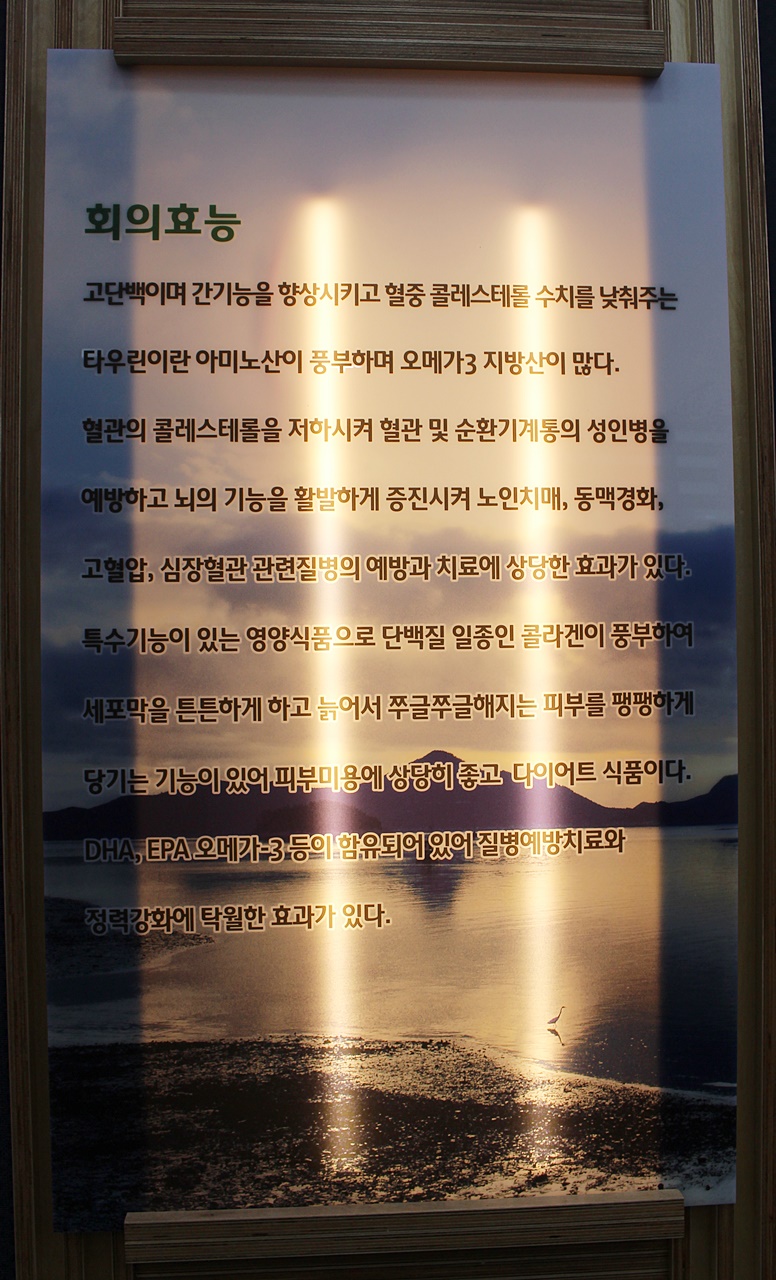 회의효능
고단백이며 간기능을 향상시키고 혈중 콜레스테롤 수치를 낮춰주는
타우린이란 아미노산이 풍부하며 오메가3 지방산이 많다.
혈관의 콜레스테롤을 저하시켜 혈관 및 순환기계통의 성인병을
예방하고 뇌의 기능을 활발하게 증진시켜 노인치매, 동맥경화,
고혈압, 심장혈관 관련질병의 예방과 치료에 상당한 효과가 있다.
특수기능이 있는 영양식품으로 단백질 일종인 콜라겐이 풍부하여
세포막을 튼튼하게 하고 늙어서 쭈글쭈글해지는 피부를 팽팽하게
당기는 기능이 있어 피부미용에 상당히 좋고 다이어트 식품이다.
DHA, EPA 오메가-3 등이 함유되어 있어 질병예방치료와
정력강화에 탁월한 효과가 있다.